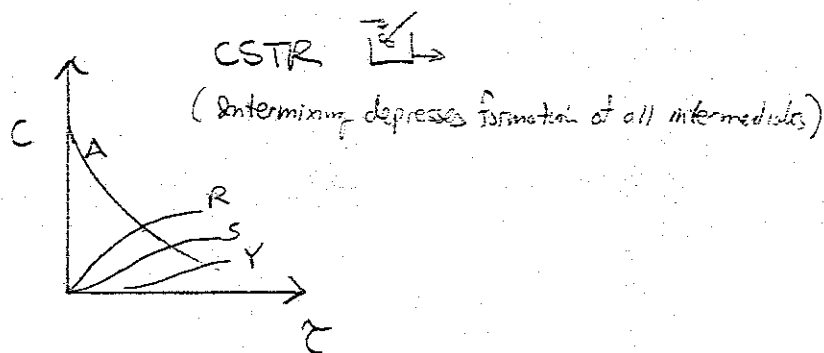 CSTR
(Intermixing depresses formation of all intermediates)
C
A
R
S
Y
τ